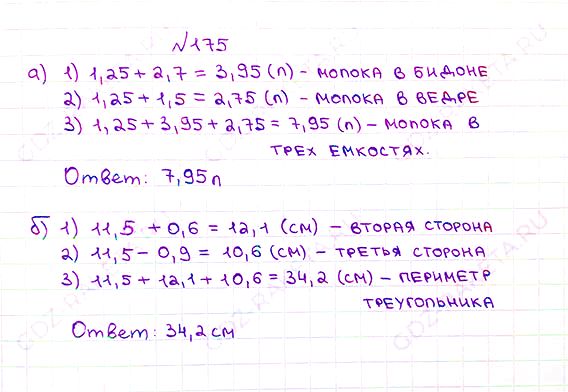 №175
а) 1) 1,25 + 2,7 = 3,95 (л) - молока в бидоне
2) 1,25 + 1,5 = 2,75 (л) - молока в ведре
3) 1,25 + 3,95 + 2,75 = 7,95 (л) - молока в
трех емкостях.
Ответ: 7,95 л
б) 1) 11,5 + 0,6 = 12,1 (см) - вторая сторона
2) 11,5 - 0,9 = 10,6 (см) - третья сторона
3) 11,5 + 12,1 + 10,6 = 34,2 (см) - периметр
треугольника
Ответ: 34,2 см